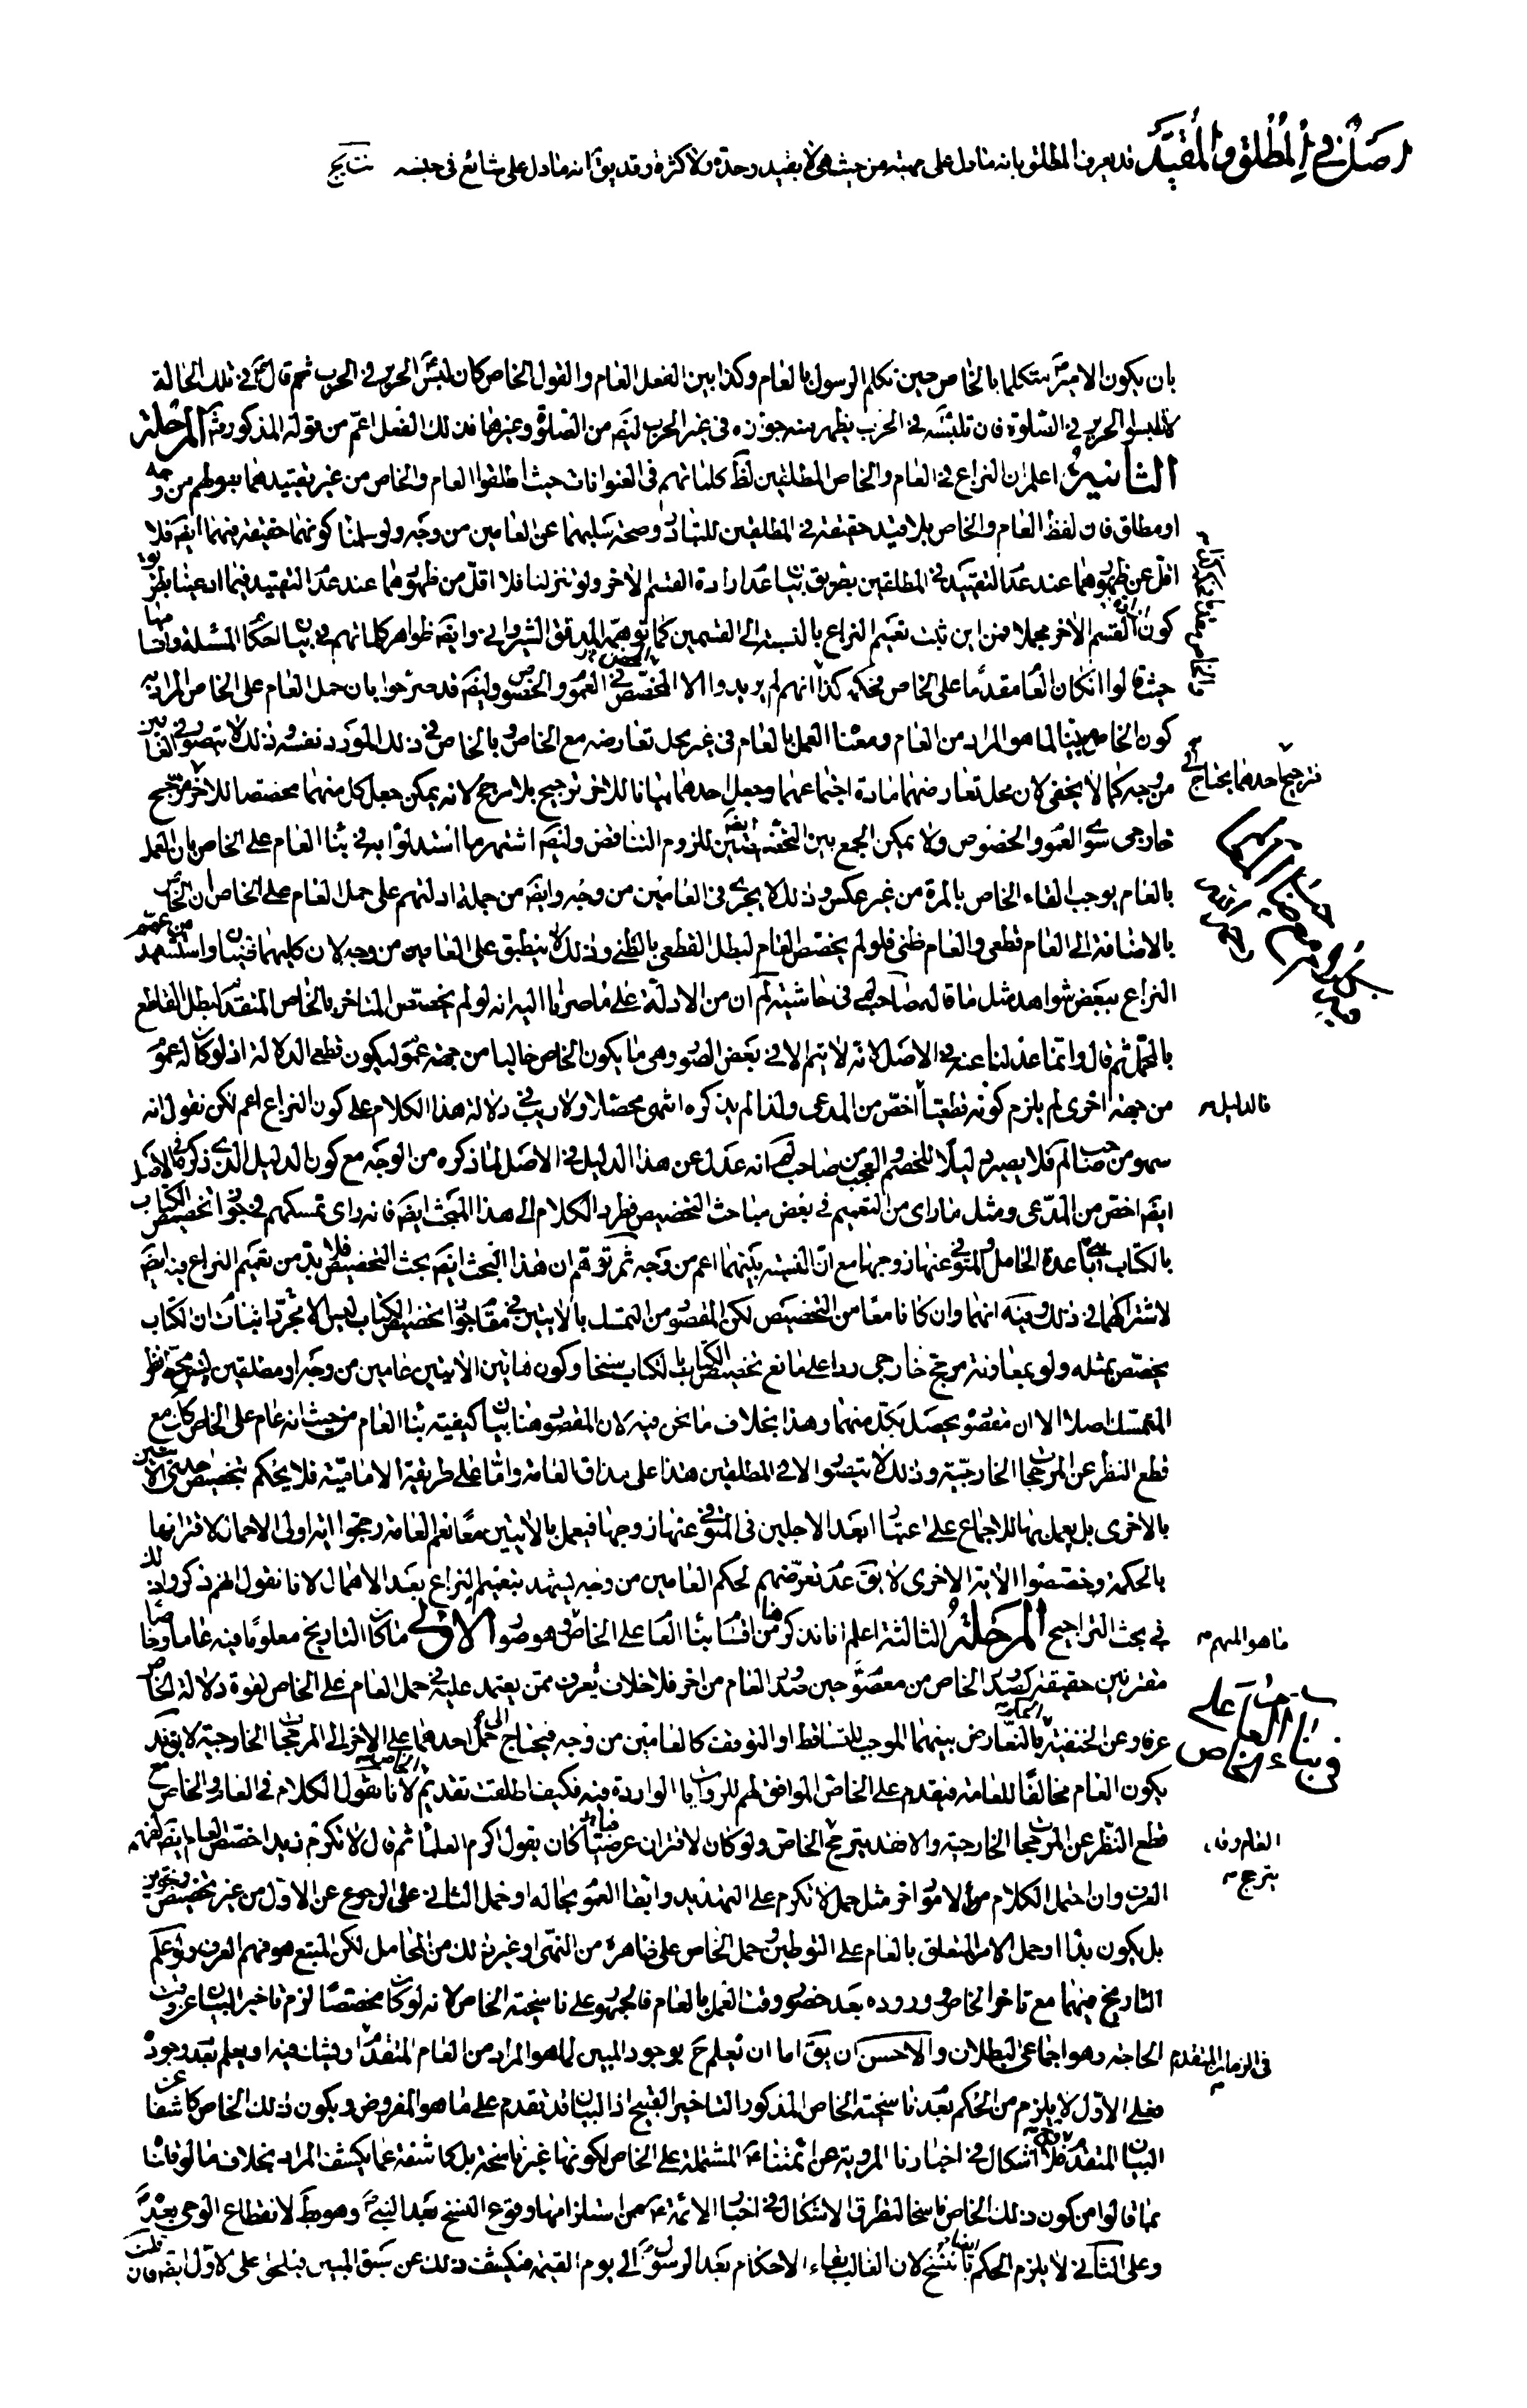 اصل في المطلق والمقيد قد يعرف المطلق بانه ما دل على مهية من حيث هي لا بقيد وحدة ولا كثرة وقد يق انه ما دل على شائع في جنسه
بان يكون الامير متكلما بالخاص حين تكلم الرسول بالعام وكذا بين الفعل العام والقول الخاص كان لبس الحرير في الحرب ثم قال في تلك الحالة
لا تلبسوا الحرير في الصلوة فان تلبسه في الحرب يظهر منه جوازه في غير الحرب ايضا من الصلوة وغيرها فذلك الفعل اعم من قوله المذكور المرحلة
الثانية اعلم ان النزاع في العام والخاص المطلقين لظ كلماتهم في العنوانات حيث اطلقوا العام والخاص من غير تقييدهما بقولهم من وجه
او مطلق فان لفظ العام والخاص بلا قيد حقيقة في المطلقين للتبادر وصحة سلبهما عن العامين من وجه ولو سلمنا كونهما حقيقة فيهما ايضا فلا
اقل عن ظهورهما عند عدم التقييد في المطلقين بطريق بيان عدم ارادة القسم الاخر ولو تنزلنا فلا اقل من ظهورهما عند عدم التقييد فيما ادعينا
كون القسم الاخر مجملا فمن اين ثبت تعميم النزاع بالنسبة الى القسمين كما توهمه المدقق الشيرواني وايضا ظواهر كلماتهم في بيان احكام المسئلة واقسامها
حيث قالوا ان كان العام مقدما على الخاص فحكمه كذا انهم لم يريدوا الا المخصص في العموم والخصوص وايضا قد صرحوا بان حمل العام على الخاص المراد به
كون الخاص مبينا لما هو المراد من العام ومعنا العمل بالعام في غير محل تعارضه مع الخاص وبالخاص في ذلك المورد نفسه وذلك لا يتصور في العامين
من وجه كما لا يخفى لان محل تعارضهما مادة اجتماعهما وجعل احدهما بيانا للاخر ترجيح بلا مرجح لانه يمكن جعل كل منهما مخصصا للاخر
خارجي سوى العموم والخصوص ولا يمكن الجمع بين التخصيصين للزوم التناقض وايضا اشتهر ما استدلوا به في بناء العام على الخاص بان العمل
بالعام يوجب الغاء الخاص بالمرة من غير عكس وذلك لا يجري في العامين من وجه وايضا من جملة ادلتهم على حمل العام على الخاص ان الخاص
بالاضافة الى العام قطعي والعام ظني فلو لم يخصص العام لبطل القطعي بالظني وذلك لا ينطبق على العامين من وجه لان كليهما ظنيان واستشهد من عمم
النزاع ببعض شواهد مثل ما قاله صاحب لم في حاشية لم ان من الادلة على ما صرنا اليه انه لو لم يخصص المتاخر بالخاص المتقدم لبطل القاطع
بالمحتمل ثم قال وانما عدلنا عنه في الاصل لانه لا يتم الا في بعض الصور وهي ما يكون الخاص خاليا من جهة عموم ليكون قطعي الدلالة اذ لو كان له عموم
من جهة اخرى لم يلزم كونه قطعيا اخص من المدعى ولذا لم يذكره انتهى محصلا ولا ريب في دلالة هذا الكلام على كون النزاع اعم لكن نقول انه
سهو من صاحب لم فلا يصير دليلا للخصم والعجب من صاحب لم انه عدل عن هذا الدليل في الاصل لما ذكره من الوجه مع كون الدليل الذي ذكره في الاصل
ايضا اخص من المدعى ومثل ما راى من التعميم في بعض مباحث التخصيص فطرد الكلام الى هذا المبحث ايضا فانه راى تمسكهم في جواز تخصيص الكتاب
بالكتاب بآيتي عدة الحامل والمتوفى عنها زوجها مع ان النسبة بينهما اعم من وجه ثم توهم ان هذا البحث ايضا بحث التخصيص فلا بد من تعميم النزاع فيه ايضا
لاشتراكهما في ذلك وفيه انهما وان كانا معا من التخصيص لكن المقصود من التمسك بالآيتين في مقام جواز تخصيص الكتاب ليس الا مجرد اثبات ان الكتاب
يخصص بمثله ولو بمعاونة مرجح خارجي ردا على مانع تخصيص الكتاب بالكتاب سنخا وكون هاتين الايتين عامين من وجه او مطلقين ليس محط نظر
المتمسك اصلا الا ان مقصوده يحصل بكل منهما وهذا بخلاف ما نحن فيه لان المقصود هنا بيان كيفية بناء العام من حيث انه عام على الخاص كان مع
قطع النظر عن المرجحات الخارجية وذلك لا يتصور الا في المطلقين هذا على مذاق العامة واما على طريقة الامامية فلا يحكم بتخصيص احدى الآيتين
بالاخرى بل يعمل بهما للاجماع على اعتبار ابعد الاجلين في المتوفى عنها زوجها فيعمل بالآيتين معا نعم العامة رجحوا اية اولى الاحمال لاقترانها
بالحكمة وخصصوا الآية الاخرى لا يق عدم تعرضهم لحكم العامين من وجه يشهد بتعميم النزاع بعد الاهمال لانا نقول انهم ذكروا ذلك
في بحث التراجيح المرحلة الثالثة اعلم انا نذكر من اقسام بناء العام على الخاص ما هو صور الاولى ما كان التاريخ معلوما فيه عاما وخاصا
مقترنين حقيقة كصدور الخاص من معصوم حين صدور العام من اخر فلا خلاف يعرف ممن يعتمد عليه في حمل العام على الخاص لقوة دلالة الخاص
عرفا وعن الحنفية بالتعارض بينهما الموجب للتساقط او التوقف كالعامين من وجه فيحتاج حمل احدهما على الاخر الى المرجحات الخارجية لا يق قد
يكون العام مخالفا للعامة فيقدم على الخاص الموافق لهم للروايات الواردة فيه فكيف اطلقت تقديم لانا نقول الكلام في العام والخاص مع
قطع النظر عن المرجحات الخارجية والا فقد يترجح الخاص ولو كان الاقتران عرفيا كان يقول اكرم العلماء ثم قال لا تكرم زيدا خصص العام ايضا لفهم
العرف وان احتمل الكلام من الامور اخر مثل حمل لا تكرم على التهديد وابقاء العموم بحاله او حمل الثاني على الرجوع عن الاول من غير تخصيص وتجوز
بل يكون بداء او حمل الامر المتعلق بالعام على التوطين وحمل الخاص على ظاهره من النهي او غير ذلك من المحامل لكن المتبع هو فهم العرف ولو علم
التاريخ فيهما مع تاخر الخاص وروده بعد حضور وقت العمل بالعام فالجمهور على ناسخية الخاص لانه لو كان مخصصا لزم تاخير البيان عن وقت
الحاجة وهو اجماعي البطلان والاحسن ان يق اما ان نعلم ح بوجود المبين لما هو المراد من العام في الزمان المتقدم او نشك فيه او يعلم بعدم وجوده
فعلى الاول لا يلزم من الحكم بعدم ناسخية الخاص المذكور التاخير القبيح اذ البيان قد تقدم على ما هو المفروض ويكون ذلك الخاص كاشفا عن
البيان المتقدم فلا اشكال في اخبارنا المروية عن ائمتنا المشتملة على الخاص لكونها غير ناسخة بل كاشفة عما يكشف المراد بخلاف ما لو قلنا
بما قالوا من كون ذلك الخاص ناسخا لتطرق الاشكال في اخبار الائمة من استلزامها وقوع النسخ بعد النبي وهو بط لانقطاع الوحي بعده
وعلى الثاني لا يلزم الحكم بالنسخ لان الغالب بقاء الاحكام بعد الرسول الى يوم القيمة فيكشف ذلك عن سبق المبين فيلحق على الاول ايضا فان قلت
ترجيح احدهما يحتاج الى
فالدليل
ما هو المهم
في بناء العام على الخاص
العام وقد
يترجح
في الزمان المتقدم